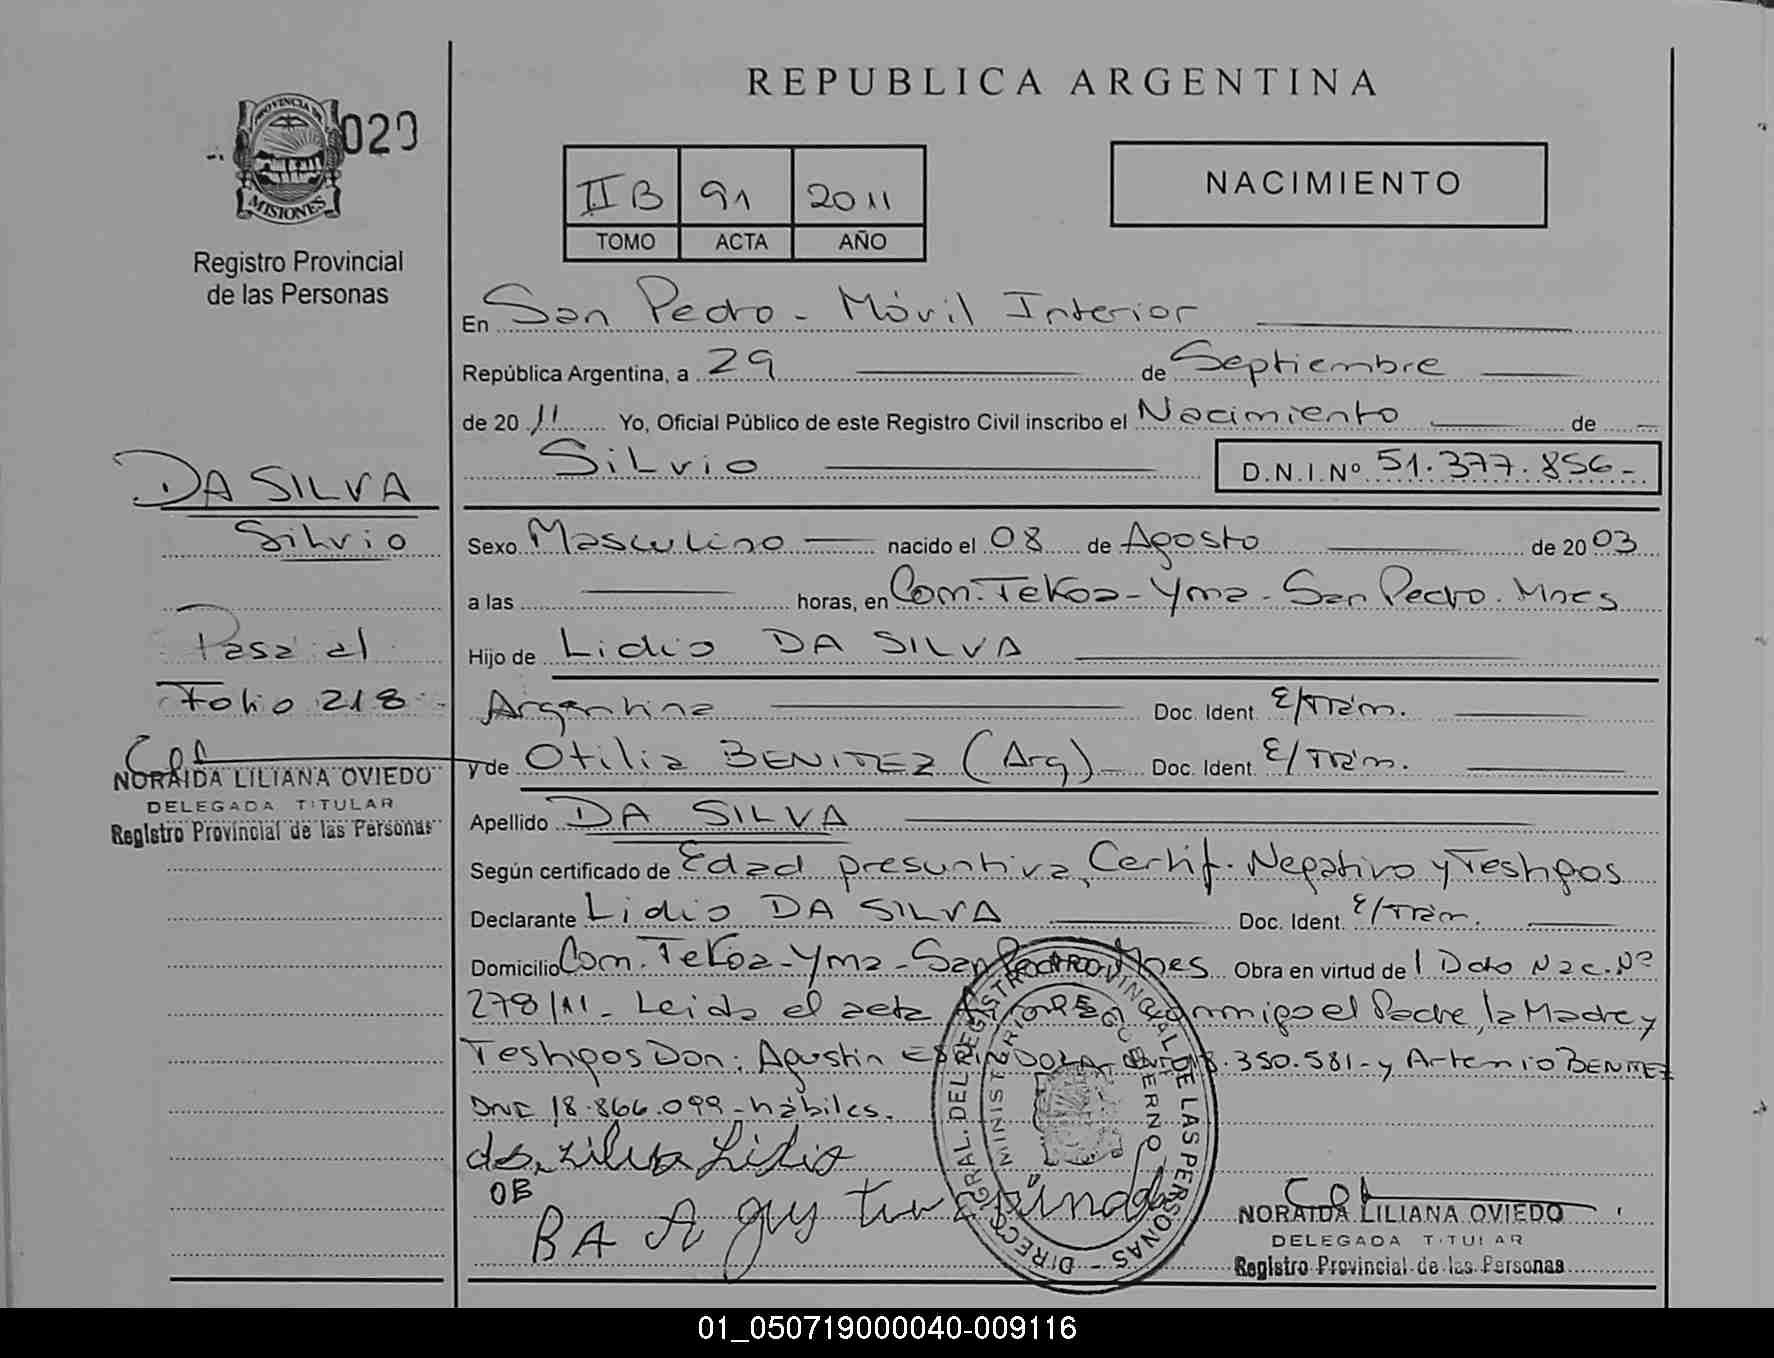 REPUBLICA ARGENTINA
PROVINCIA DE
MISIONES
020
Registro Provincial
de las Personas
II B 91 2011
TOMO ACTA AÑO
NACIMIENTO
En San Pedro - Móvil Interior
República Argentina, a 29 de Septiembre
de 2011 Yo, Oficial Público de este Registro Civil inscribo el Nacimiento de
Silvio D.N.I.Nº 51.377.856-
DA SILVA
Silvio
Pasa al
Folio 218
NORAIDA LILIANA OVIEDO
DELEGADA TITULAR
Registro Provincial de las Personas
Sexo Masculino nacido el 08 de Agosto de 2003
a las horas, en Com. Tekoa - Yma - San Pedro. Mnes
Hijo de Lidio DA SILVA
Argentina Doc. Ident. E/Trám.
y de Otilia BENITEZ (Arg) Doc. Ident. E/Trám.
Apellido DA SILVA
Según certificado de Edad presuntiva, Certif. Negativo y Testigos
Declarante Lidio DA SILVA Doc. Ident. E/Trám.
Domicilio Com. Tekoa - Yma - San Pedro, Mnes Obra en virtud de l Dcto Nac. Nº
278/11 - Leida el acta firman conmigo el Padre, la Madre y
Testigos Don: Agustin ESPINDOLA .350.581 - y Artemio BENITEZ
DNI 18.866.099 - hábiles.
da silva Lidio
OB
BA Agustin espindola
DIRECC. GRAL. DEL REGISTRO PROVINCIAL DE LAS PERSONAS -
MINISTERIO DE GOBIERNO
NORAIDA LILIANA OVIEDO
DELEGADA TITULAR
Registro Provincial de las Personas
01_050719000040-009116